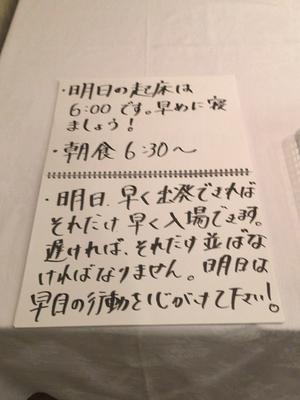 ・明日の起床は
6:00です。早めに寝
ましょう!
・朝食 6:30〜
・明日、早く出発できれば
それだけ早く入場できます。
遅ければ、それだけ並ばな
ければなりません。明日は
早目の行動を心がけて下さい!